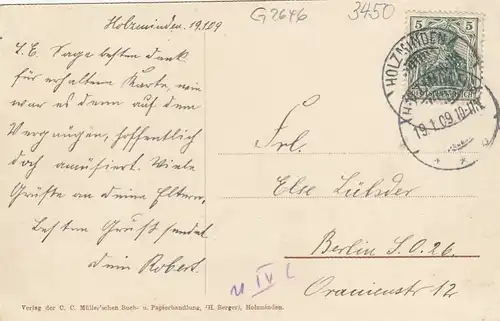 G2646
3450
Holzminden, 19.1.09
L. E. Sage besten Dank
für erhaltene Karte, wie
war es denn auf dem
Vergnügen, hoffentlich
doch amüsiert. Viele
Grüße an deine Eltern,
besten Gruß sendet
dein Robert.
5 5
HOLZMINDEN
19.1.09.10-11V.
Frl.
Else
Berlin S.O. 26.
Oranienstr 12
IV
Verlag der C. C. Müller'schen Buch- u. Papierhandlung, (H. Berger), Holzminden.